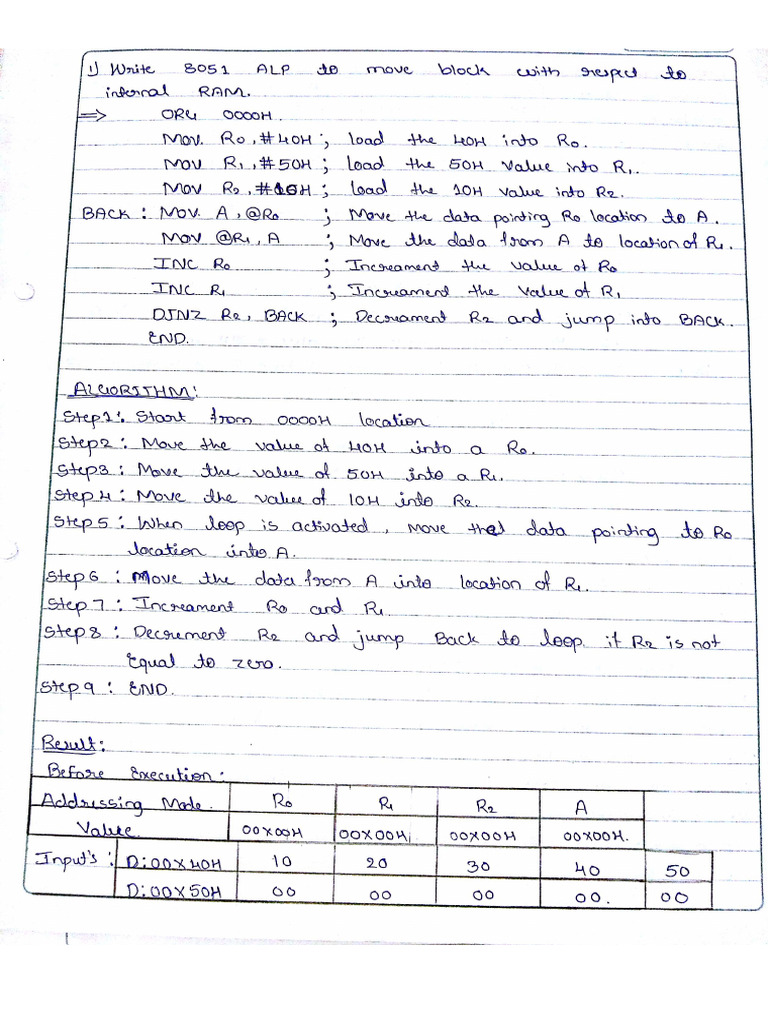 1) Write 8051 ALP to move block with respect to
internal RAM.
⇒ ORG 0000H.
Mov. R0, #40H ; load the 40H into R0.
Mov R1, #50H ; load the 50H value into R1.
Mov R2, #H ; load the 10H value into R2.
BACK : Mov. A, @R0 ; Move the data pointing R0 location to A.
Mov @R1, A ; Move the data from A to location of R1.
INC R0 ; Increament the value of R0
INC R1 ; Increament the value of R1
DJNZ R2, BACK ; Decreament R2 and jump into BACK.
END.
ALGORITHM:
Step1: Start from 0000H location
Step2 : Move the value of 40H into a R0.
Step3 : Move the value of 50H into a R1.
Step 4 : Move the value of 10H into R2.
Step 5 : When loop is activated, move the data pointing to R0
location into A.
Step 6 : Move the data from A into location of R1.
Step 7 : Increament R0 and R1.
Step 8 : Decrement R2 and jump Back to loop if R2 is not
Equal to zero.
Step 9 : END.
Result:
Before Execution:
Addressing Mode. R0 R1 R2 A
Value 00X00H 00X00H 00X00H 00X00H.
Input's : D:00X40H 10 20 30 40 50
D:00X50H 00 00 00 00. 00